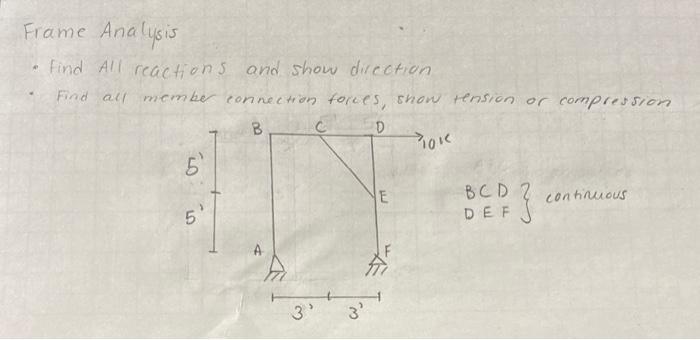 Frame Analysis
• Find All reactions and show direction
• Find all member connection forces, show tension or compression
B C D
10K
5'
E
BCD } continuous
DEF
5'
A F
3' 3'